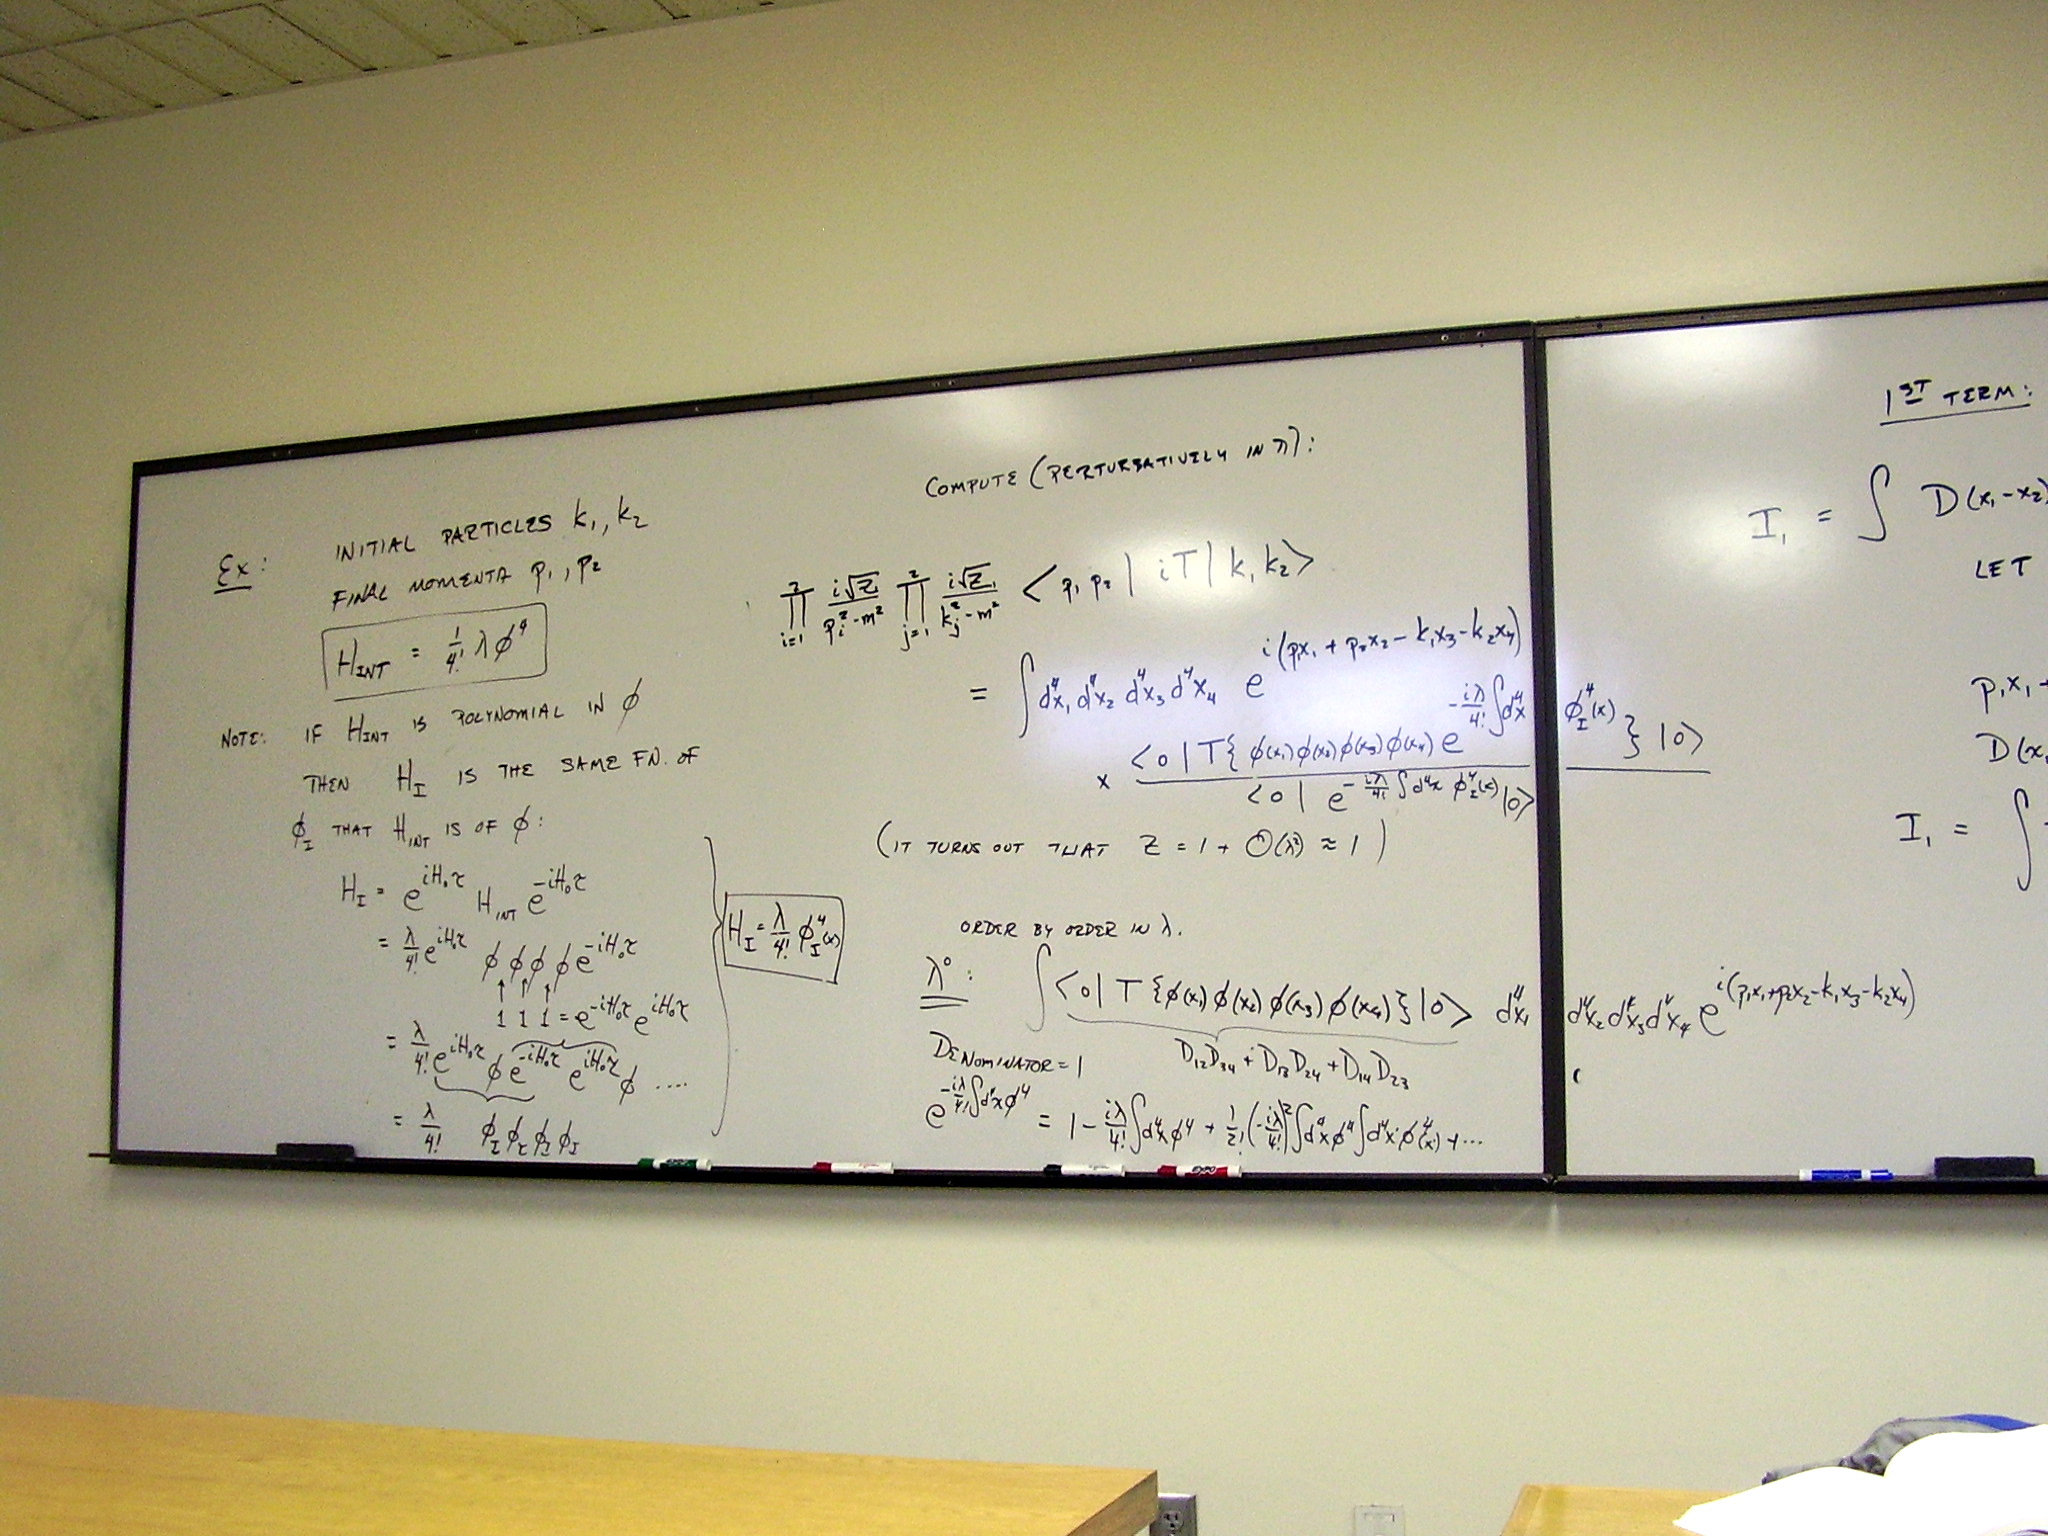 Ex: INITIAL PARTICLES k₁, k₂
FINAL MOMENTA p₁, p₂
H_INT = 1/4! λ φ⁴
NOTE: IF H_INT IS POLYNOMIAL IN φ
THEN H_I IS THE SAME FN. OF
φ_I THAT H_INT IS OF φ:
H_I = e^{iH₀τ} H_INT e^{-iH₀τ}
= λ/4! e^{iH₀τ} φ φ φ φ e^{-iH₀τ}
↑ ↑ ↑
1 1 1 = e^{-iH₀τ} e^{iH₀τ}
= λ/4! e^{iH₀τ} φ e^{-iH₀τ} e^{iH₀τ} φ ....
= λ/4! φ_I φ_I φ_I φ_I
H_I = λ/4! φ_I⁴(x)
COMPUTE (PERTURBATIVELY IN λ):
∏_{i=1}^{2} i√Z/(p_i²-m²) ∏_{j=1}^{2} i√Z/(k_j²-m²) <p₁ p₂| iT | k₁ k₂>
= ∫ d⁴x₁ d⁴x₂ d⁴x₃ d⁴x₄ e^{i(p₁x₁ + p₂x₂ - k₁x₃ - k₂x₄)}
× <0|T{φ(x₁)φ(x₂)φ(x₃)φ(x₄) e^{-iλ/4! ∫d⁴x φ_I⁴(x)}}|0>
<0| e^{-iλ/4! ∫d⁴x φ_I⁴(x)} |0>
(IT TURNS OUT THAT Z = 1 + O(λ²) ≈ 1)
ORDER BY ORDER IN λ.
λ⁰: ∫ <0| T {φ(x₁) φ(x₂) φ(x₃) φ(x₄)} |0> d⁴x₁ d⁴x₂ d⁴x₃ d⁴x₄ e^{i(p₁x₁+p₂x₂-k₁x₃-k₂x₄)}
DENOMINATOR = 1 D₁₂D₃₄ + D₁₃D₂₄ + D₁₄D₂₃
e^{-iλ/4! ∫d⁴x φ⁴} = 1 - iλ/4! ∫d⁴x φ⁴ + 1/2! (-iλ/4!)² ∫d⁴x φ⁴ ∫d⁴x' φ⁴(x') + ...
1ST TERM:
I₁ = ∫ D(x₁-x₂)
LET
p₁x₁ +
D(x
I₁ = ∫